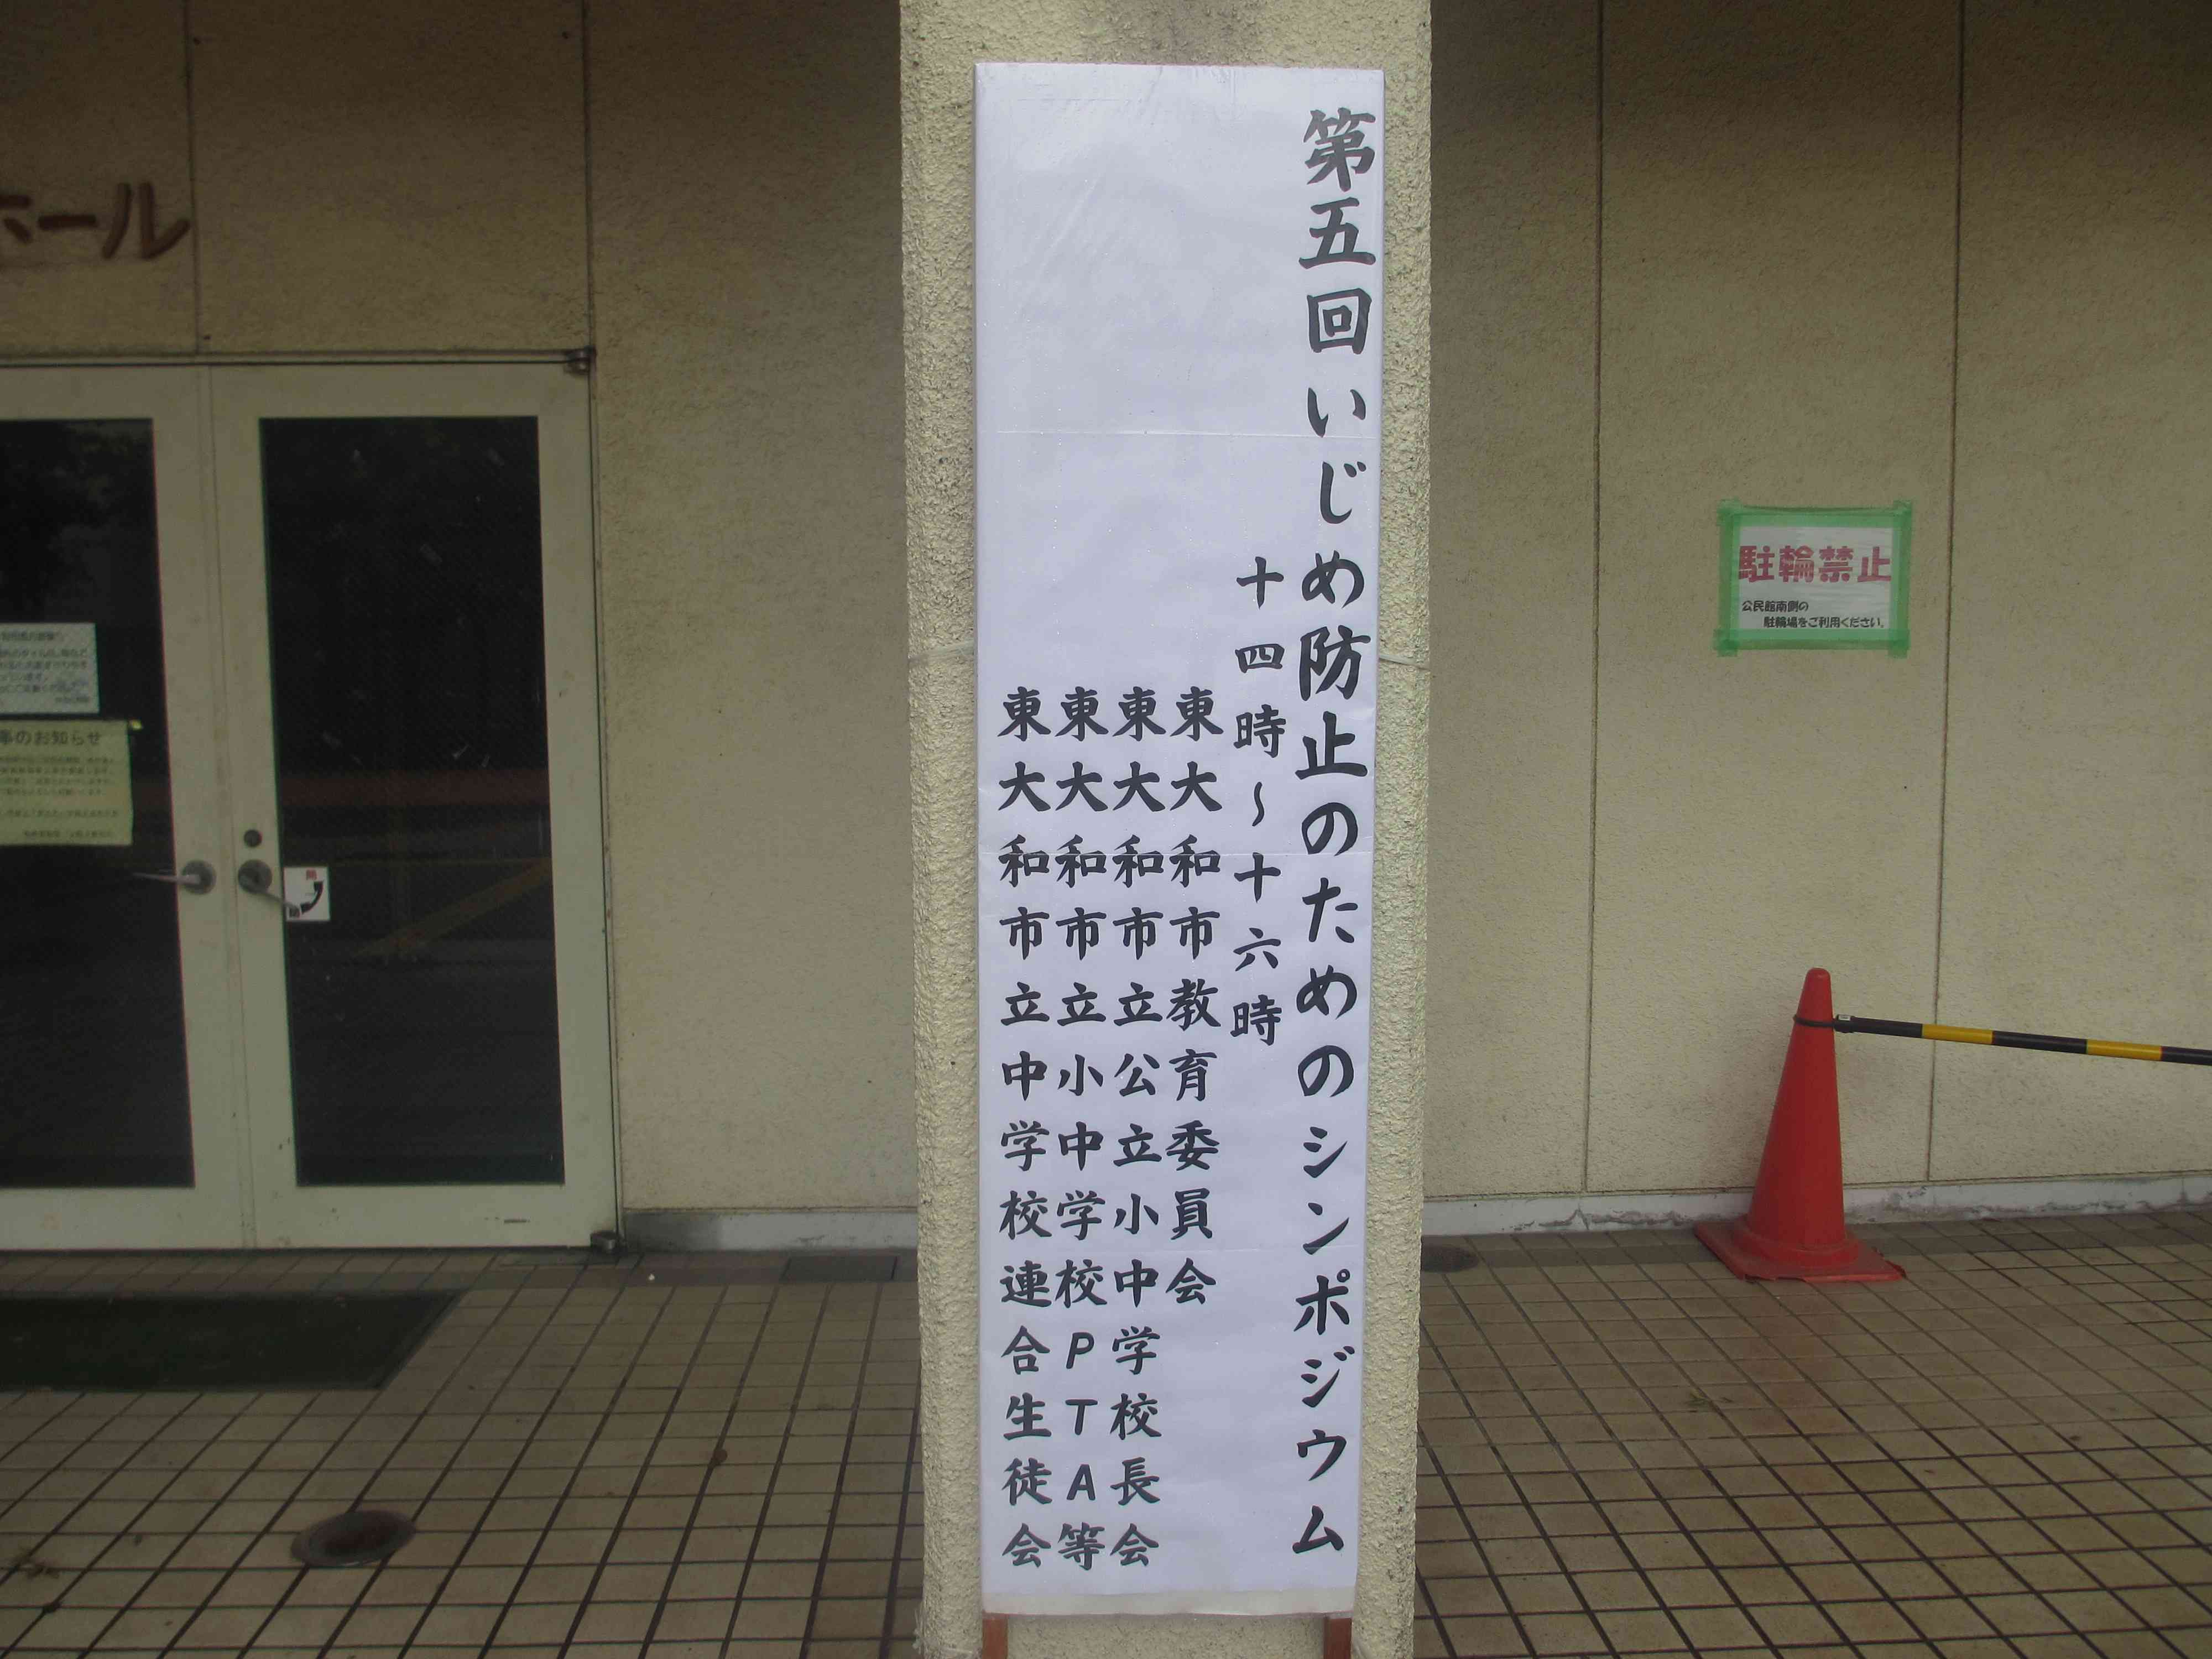 第五回いじめ防止のためのシンポジウム
十四時～十六時
東大和市教育委員会
東大和市立公立小中学校長会
東大和市立小中学校PTA等
東大和市立中学校連合生徒会
ホール
駐輪禁止
公民館南側の
駐輪場をご利用ください。
のお知らせ